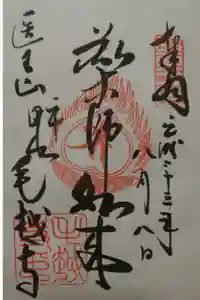 奉拝
平成二十三年
八月八日
薬師如来
医王山
平泉
毛越寺